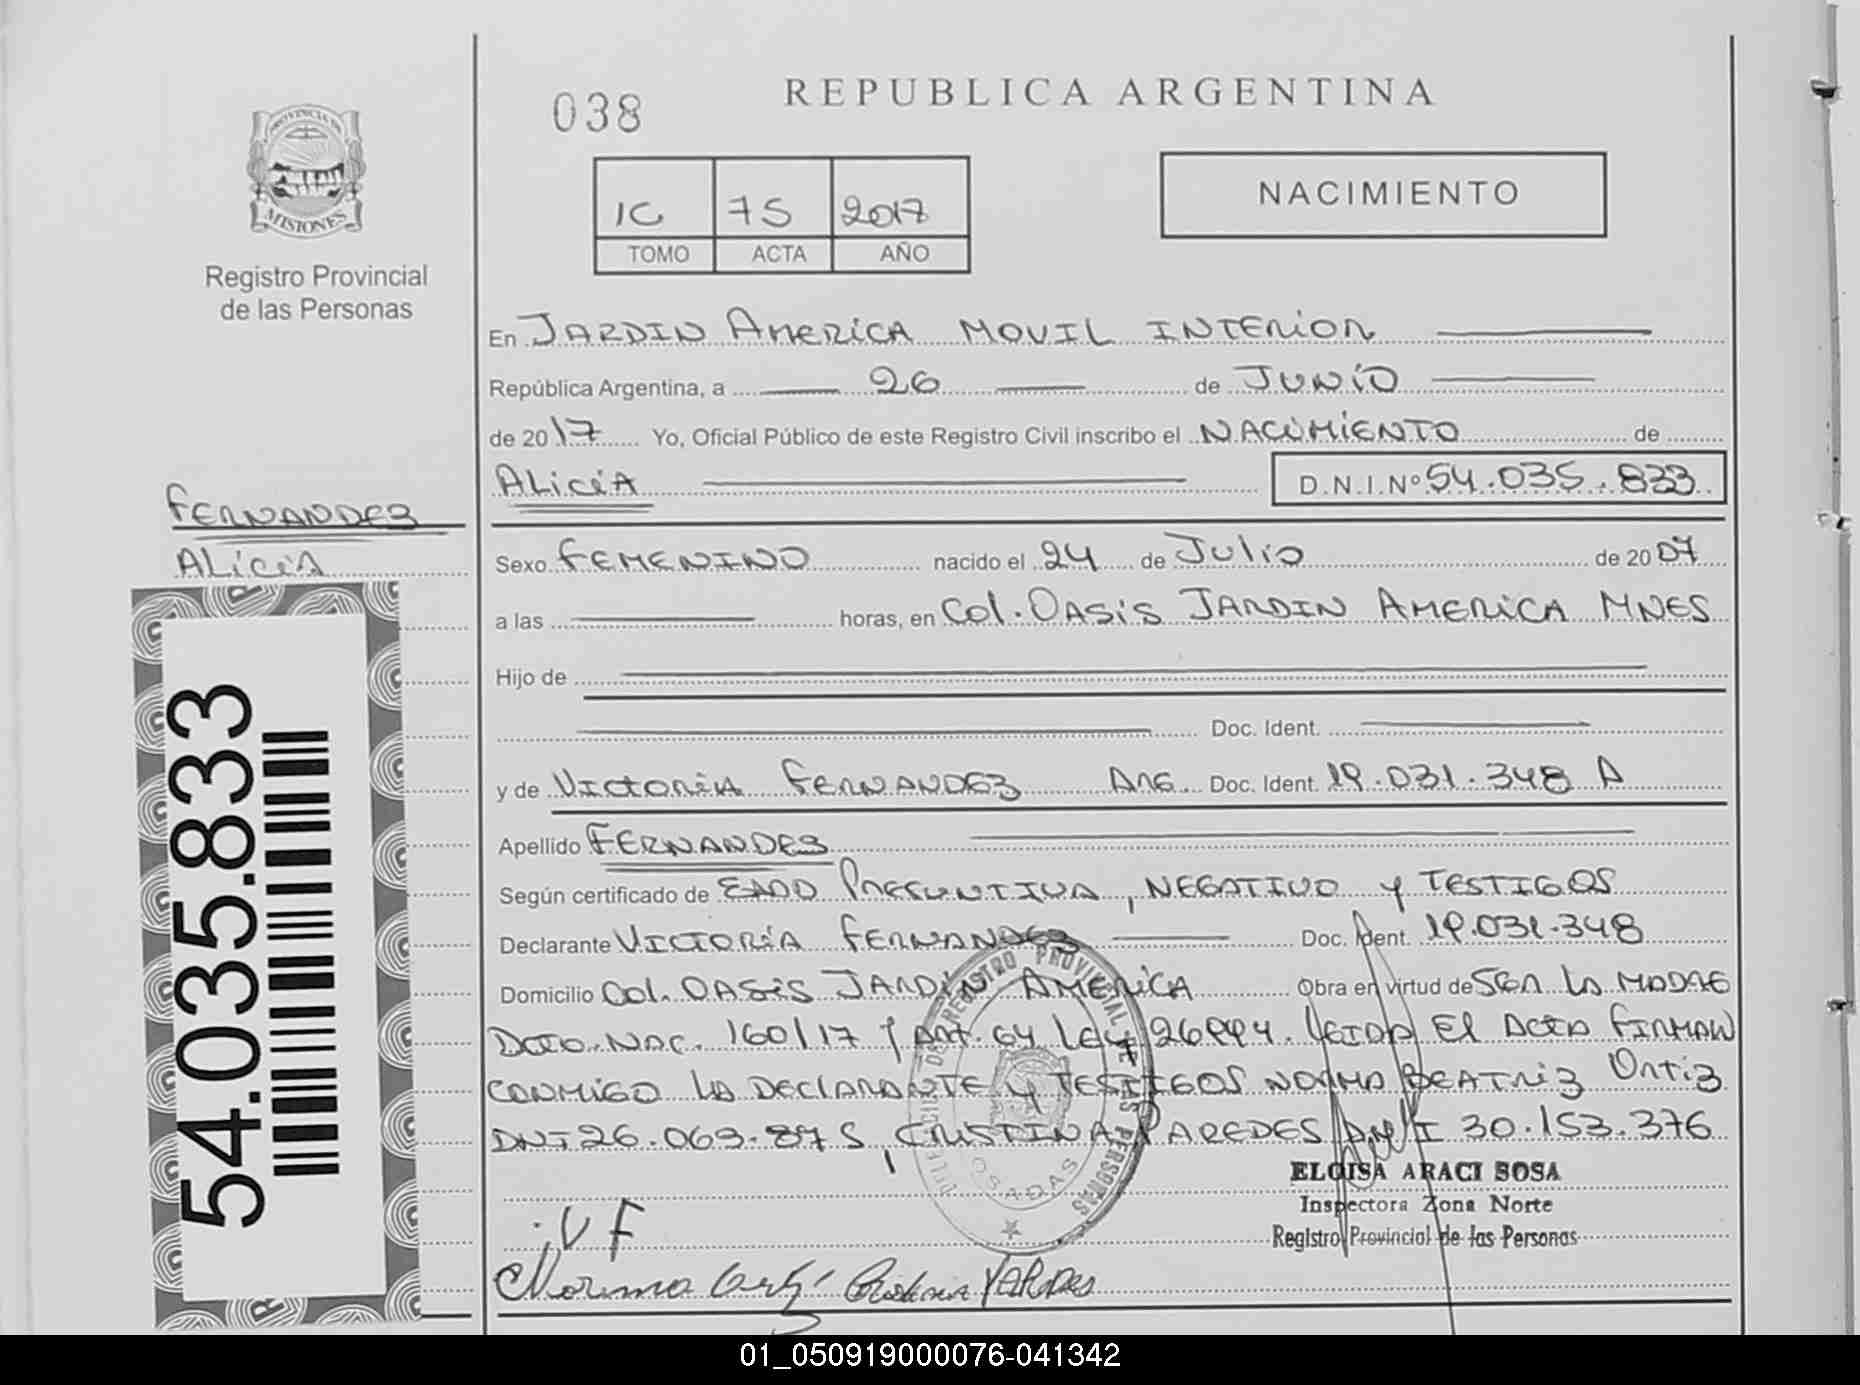 REPUBLICA ARGENTINA
038
PROVINCIA DE
MISIONES
Registro Provincial
de las Personas
1C 75 2017
TOMO ACTA AÑO
NACIMIENTO
En JARDIN AMERICA MOVIL INTERIOR
República Argentina, a 26 de JUNIO
de 2017 Yo, Oficial Público de este Registro Civil inscribo el NACIMIENTO de
ALICIA D.N.I.Nº 54.035.833
FERNANDEZ
ALICIA
54.035.833
Sexo FEMENINO nacido el 24 de JULIO de 2007
a las horas, en COL. OASIS JARDIN AMERICA MNES
Hijo de
Doc. Ident.
y de VICTORIA FERNANDEZ ARG. Doc. Ident. 19.031.348 A
Apellido FERNANDEZ
Según certificado de EDAD PRESUNTIVA, NEGATIVO Y TESTIGOS
Declarante VICTORIA FERNANDEZ Doc. Ident. 19.031.348
Domicilio COL. OASIS JARDIN AMERICA Obra en virtud de SER LA MADRE
DCTO. NAC. 160/17 Y ART. 64 LEY 26994. LEIDA EL ACTA FIRMAN
CONMIGO LA DECLARANTE Y TESTIGOS NORMA BEATRIZ ORTIZ
DNI 26.069.875, CRISTINA PAREDES DNI 30.153.376
REGISTRO PROVINCIAL DE LAS PERSONAS
POSADAS
ELOISA ARACI SOSA
Inspectora Zona Norte
Registro Provincial de las Personas
VF
Norma Ortiz Cristina PAREDES
01_050919000076-041342